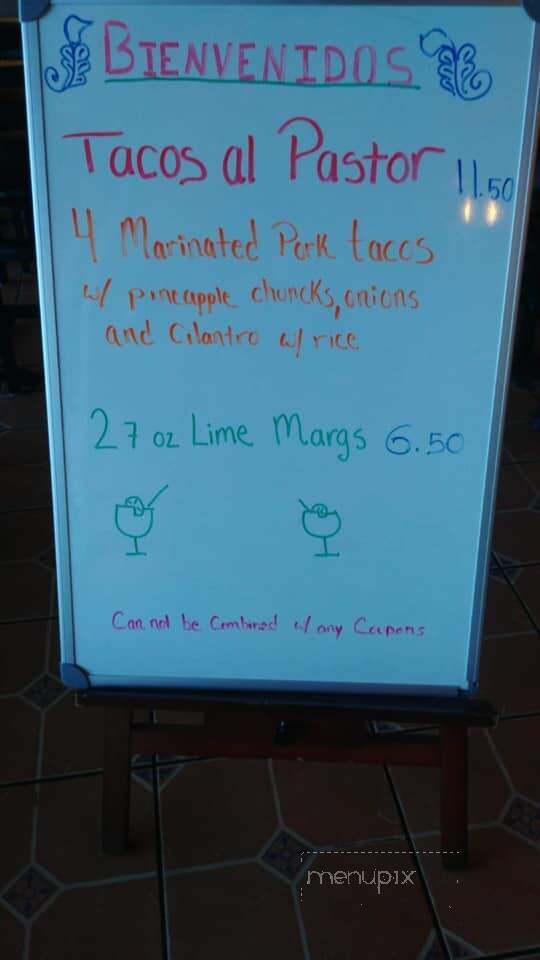 BIENVENIDOS
Tacos al Pastor 11.50
4 Marinated Pork tacos
w/ pineapple chuncks, onions
and Cilantro w/ rice
27 oz Lime Margs 6.50
Can not be Combined w/ any Coupons
menupix